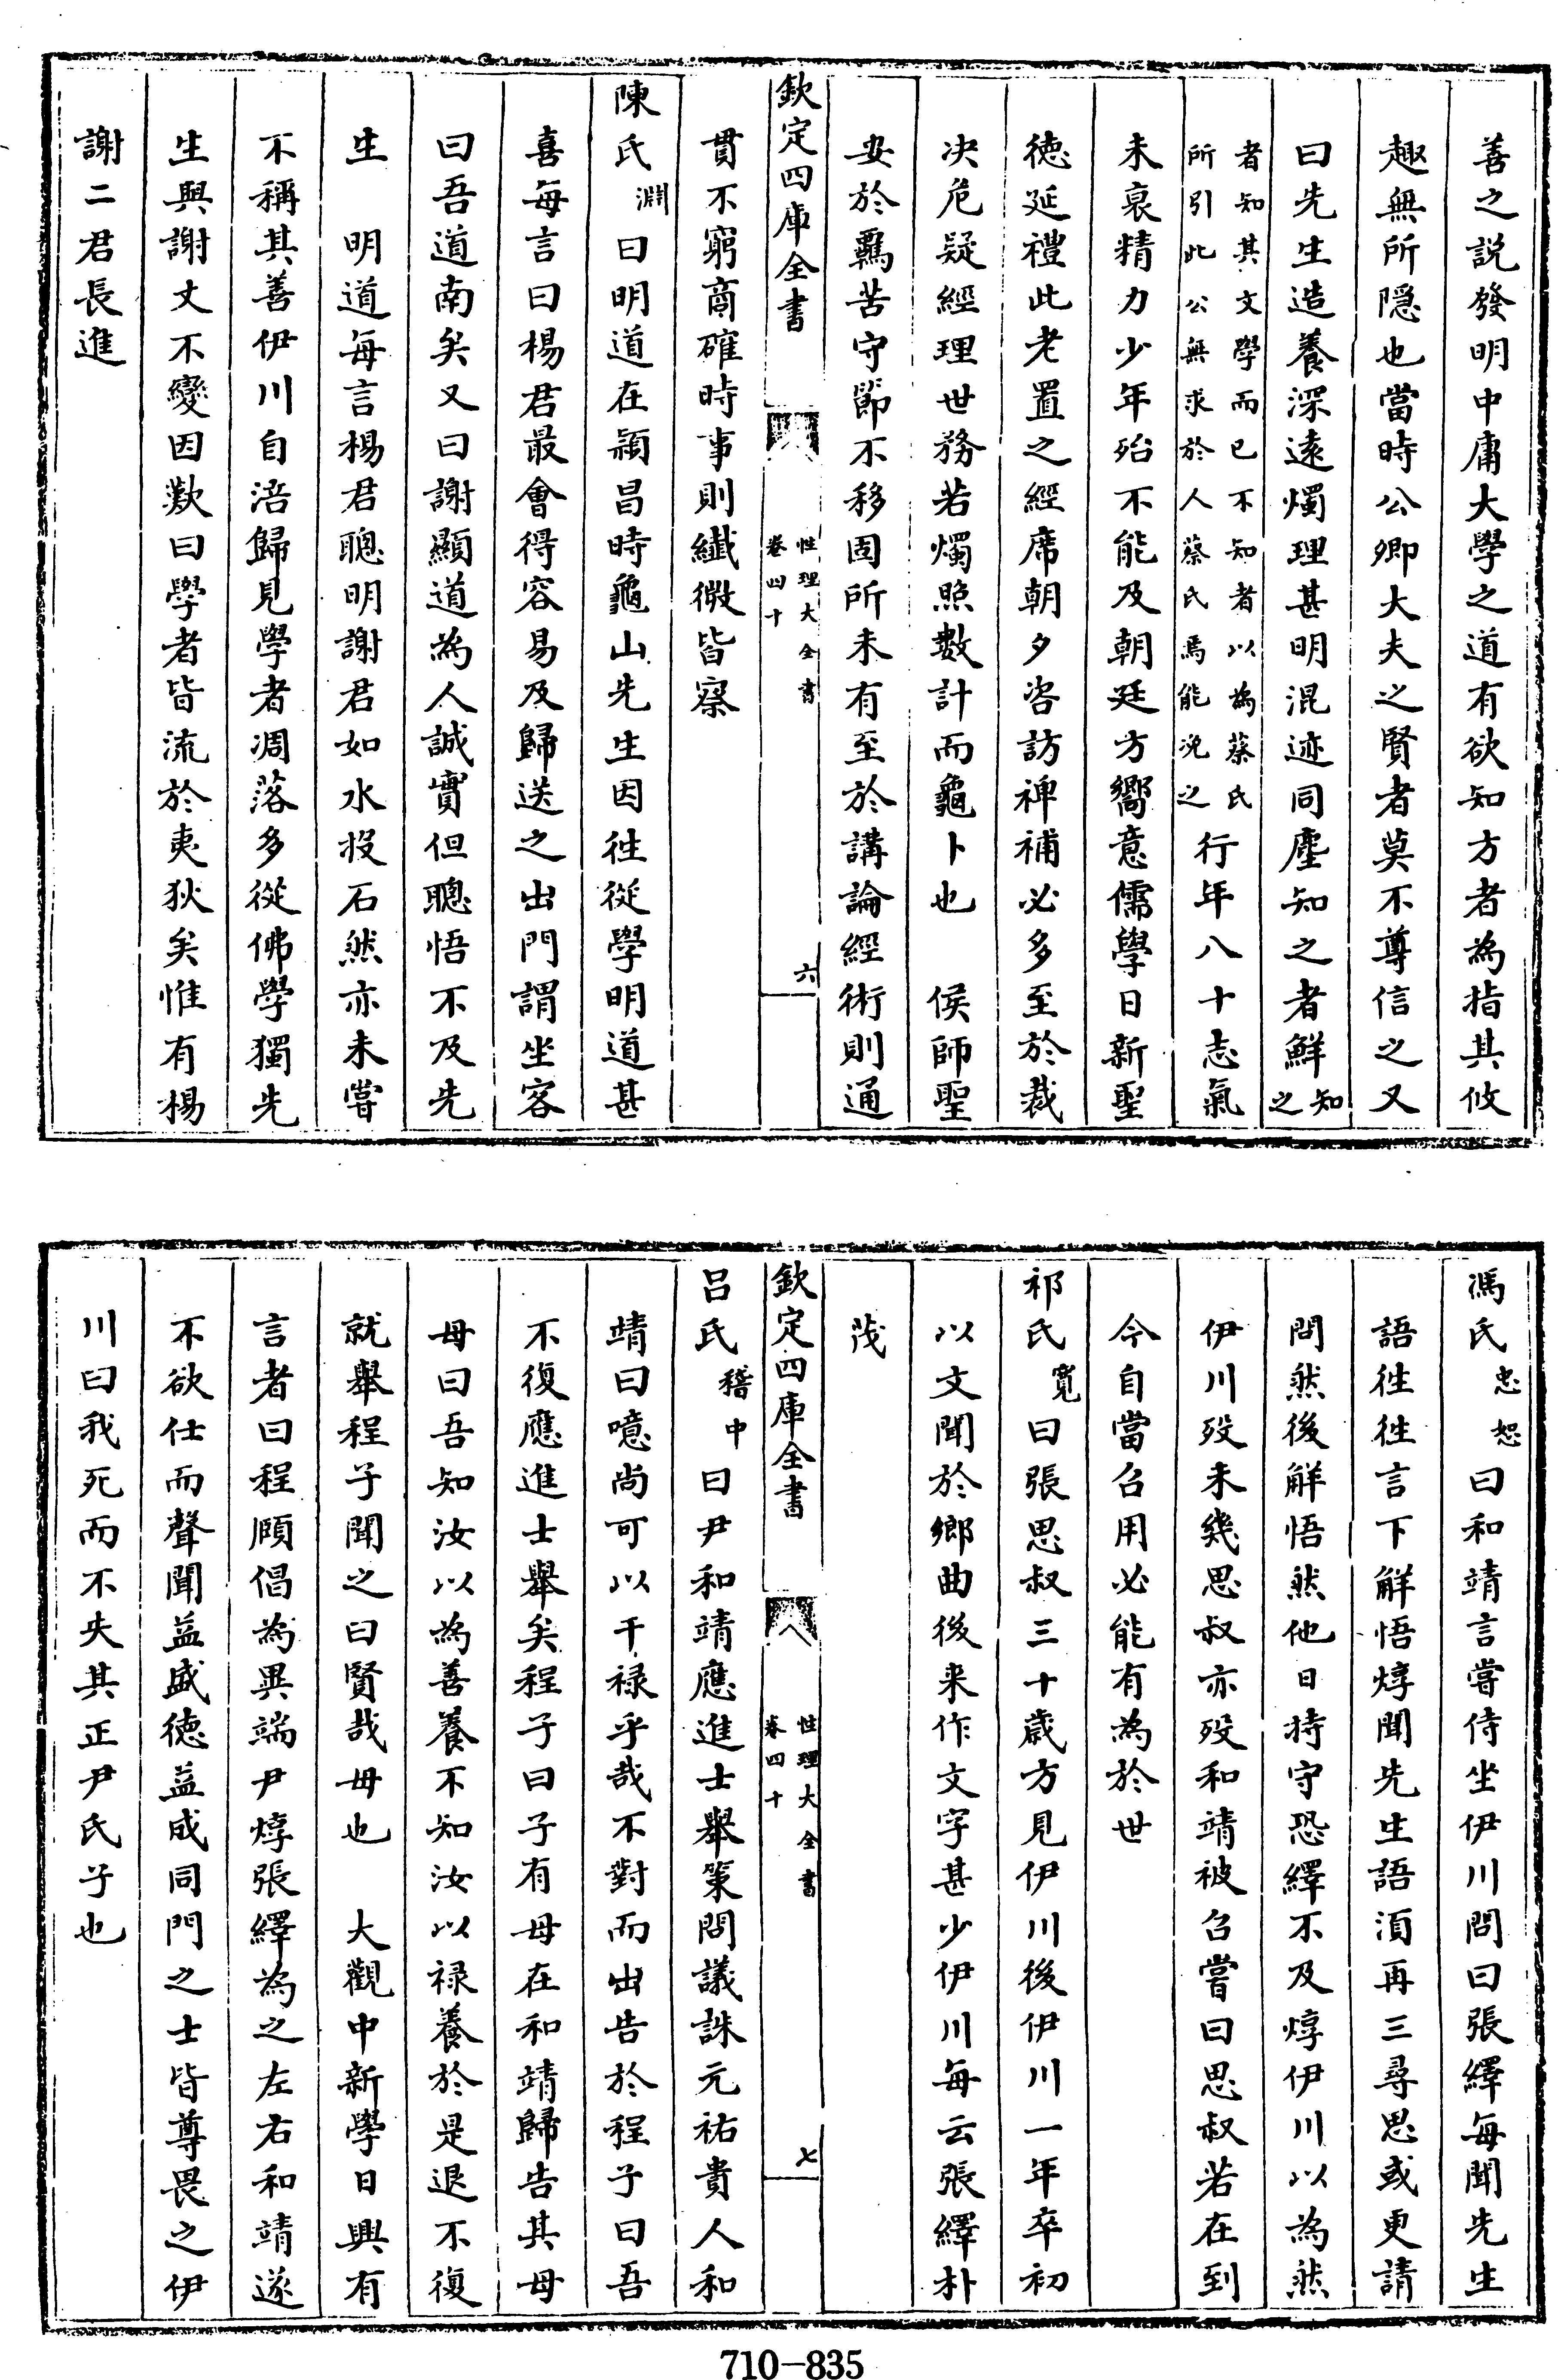 善之說發明中庸大學之道有欲知方者為指其攸
趣無所隱也當時公卿大夫之賢者莫不尊信之又
曰先生造養深遠燭理甚明混迹同塵知之者鮮知之
者知其文學而已不知者以為蔡氏
所引此公無求於人蔡氏焉能浼之行年八十志氣
未衰精力少年殆不能及朝廷方嚮意儒學日新聖
徳延禮此老置之經席朝夕咨訪禆補必多至於裁
决危疑經理世務若燭照數計而龜卜也 侯師聖
安於羈苦守節不移固所未有至於講論經術則通
欽定四庫全書
性理大全書
卷四十
六
貫不窮商確時事則纖微皆察
陳氏淵曰明道在潁昌時龜山先生因徃從學明道甚
喜每言曰楊君最會得容易及歸送之出門謂坐客
曰吾道南矣又曰謝顯道為人誠實但聰悟不及先
生 明道每言楊君聰明謝君如水投石然亦未嘗
不稱其善伊川自涪歸見學者凋落多從佛學獨先
生與謝丈不變因歎曰學者皆流於夷狄矣惟有楊
謝二君長進
馮氏忠恕曰和靖言嘗侍坐伊川問曰張繹每聞先生
語徃徃言下解悟焞聞先生語湏再三尋思或更請
問然後解悟然他日持守恐繹不及焞伊川以為然
伊川歿未幾思叔亦歿和靖被召嘗曰思叔若在到
今自當召用必能有為於世
祁氏寛曰張思叔三十歲方見伊川後伊川一年卒初
以文聞於鄉曲後来作文字甚少伊川每云張繹朴
茂
欽定四庫全書
性理大全書
卷四十
七
吕氏稽中曰尹和靖應進士舉策問議誅元祐貴人和
靖曰噫尚可以干禄乎哉不對而出告於程子曰吾
不復應進士舉矣程子曰子有母在和靖歸告其母
母曰吾知汝以為善養不知汝以禄養於是退不復
就舉程子聞之曰賢哉母也 大觀中新學日興有
言者曰程頤倡為異端尹焞張繹為之左右和靖遂
不欲仕而聲聞益盛徳益成同門之士皆尊畏之伊
川曰我死而不失其正尹氏子也
710-835